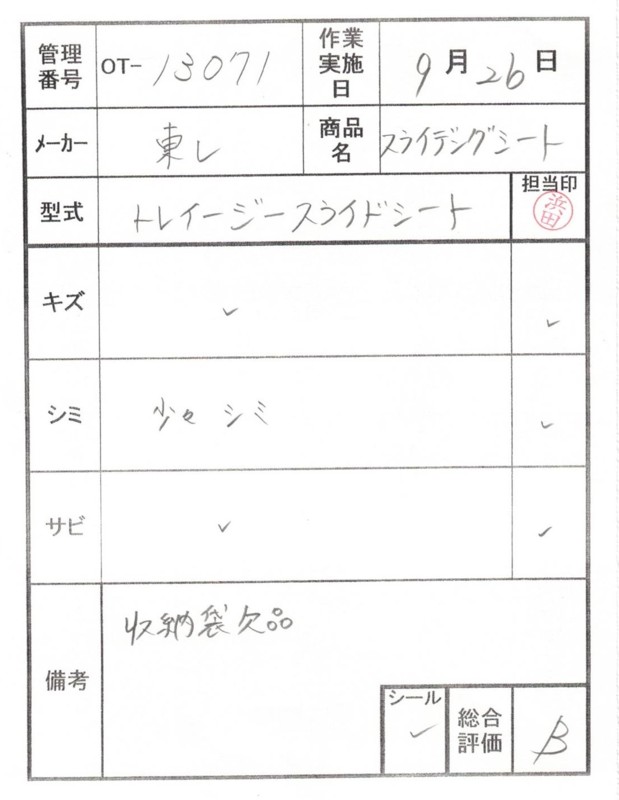 管理番号 OT-13071 作業実施日 9月26日
メーカー 東レ 商品名 スライデングシート
型式 トレイージースライドシート 担当印 浜田
キズ ✓ ✓
シミ 少々シミ ✓
サビ ✓ ✓
備考 収納袋欠品
シール ✓ 総合評価 B